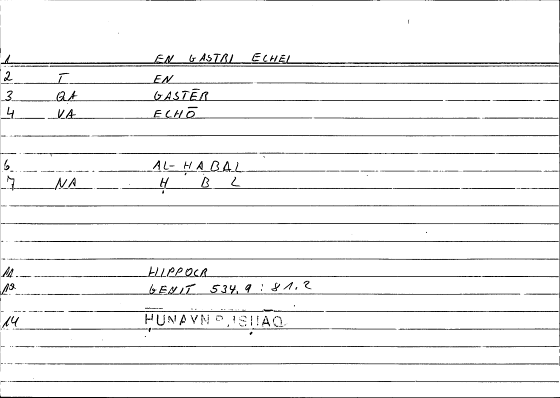 1 EN GASTRI ECHEI
2 T EN
3 QA GASTĒR
4 VA ECHŌ
6 AL-ḤABAL
7 NA Ḥ B L
11 HIPPOCR
GENIT 534.9 : 81.2
14 ḤUNAYN B. ISḤĀQ